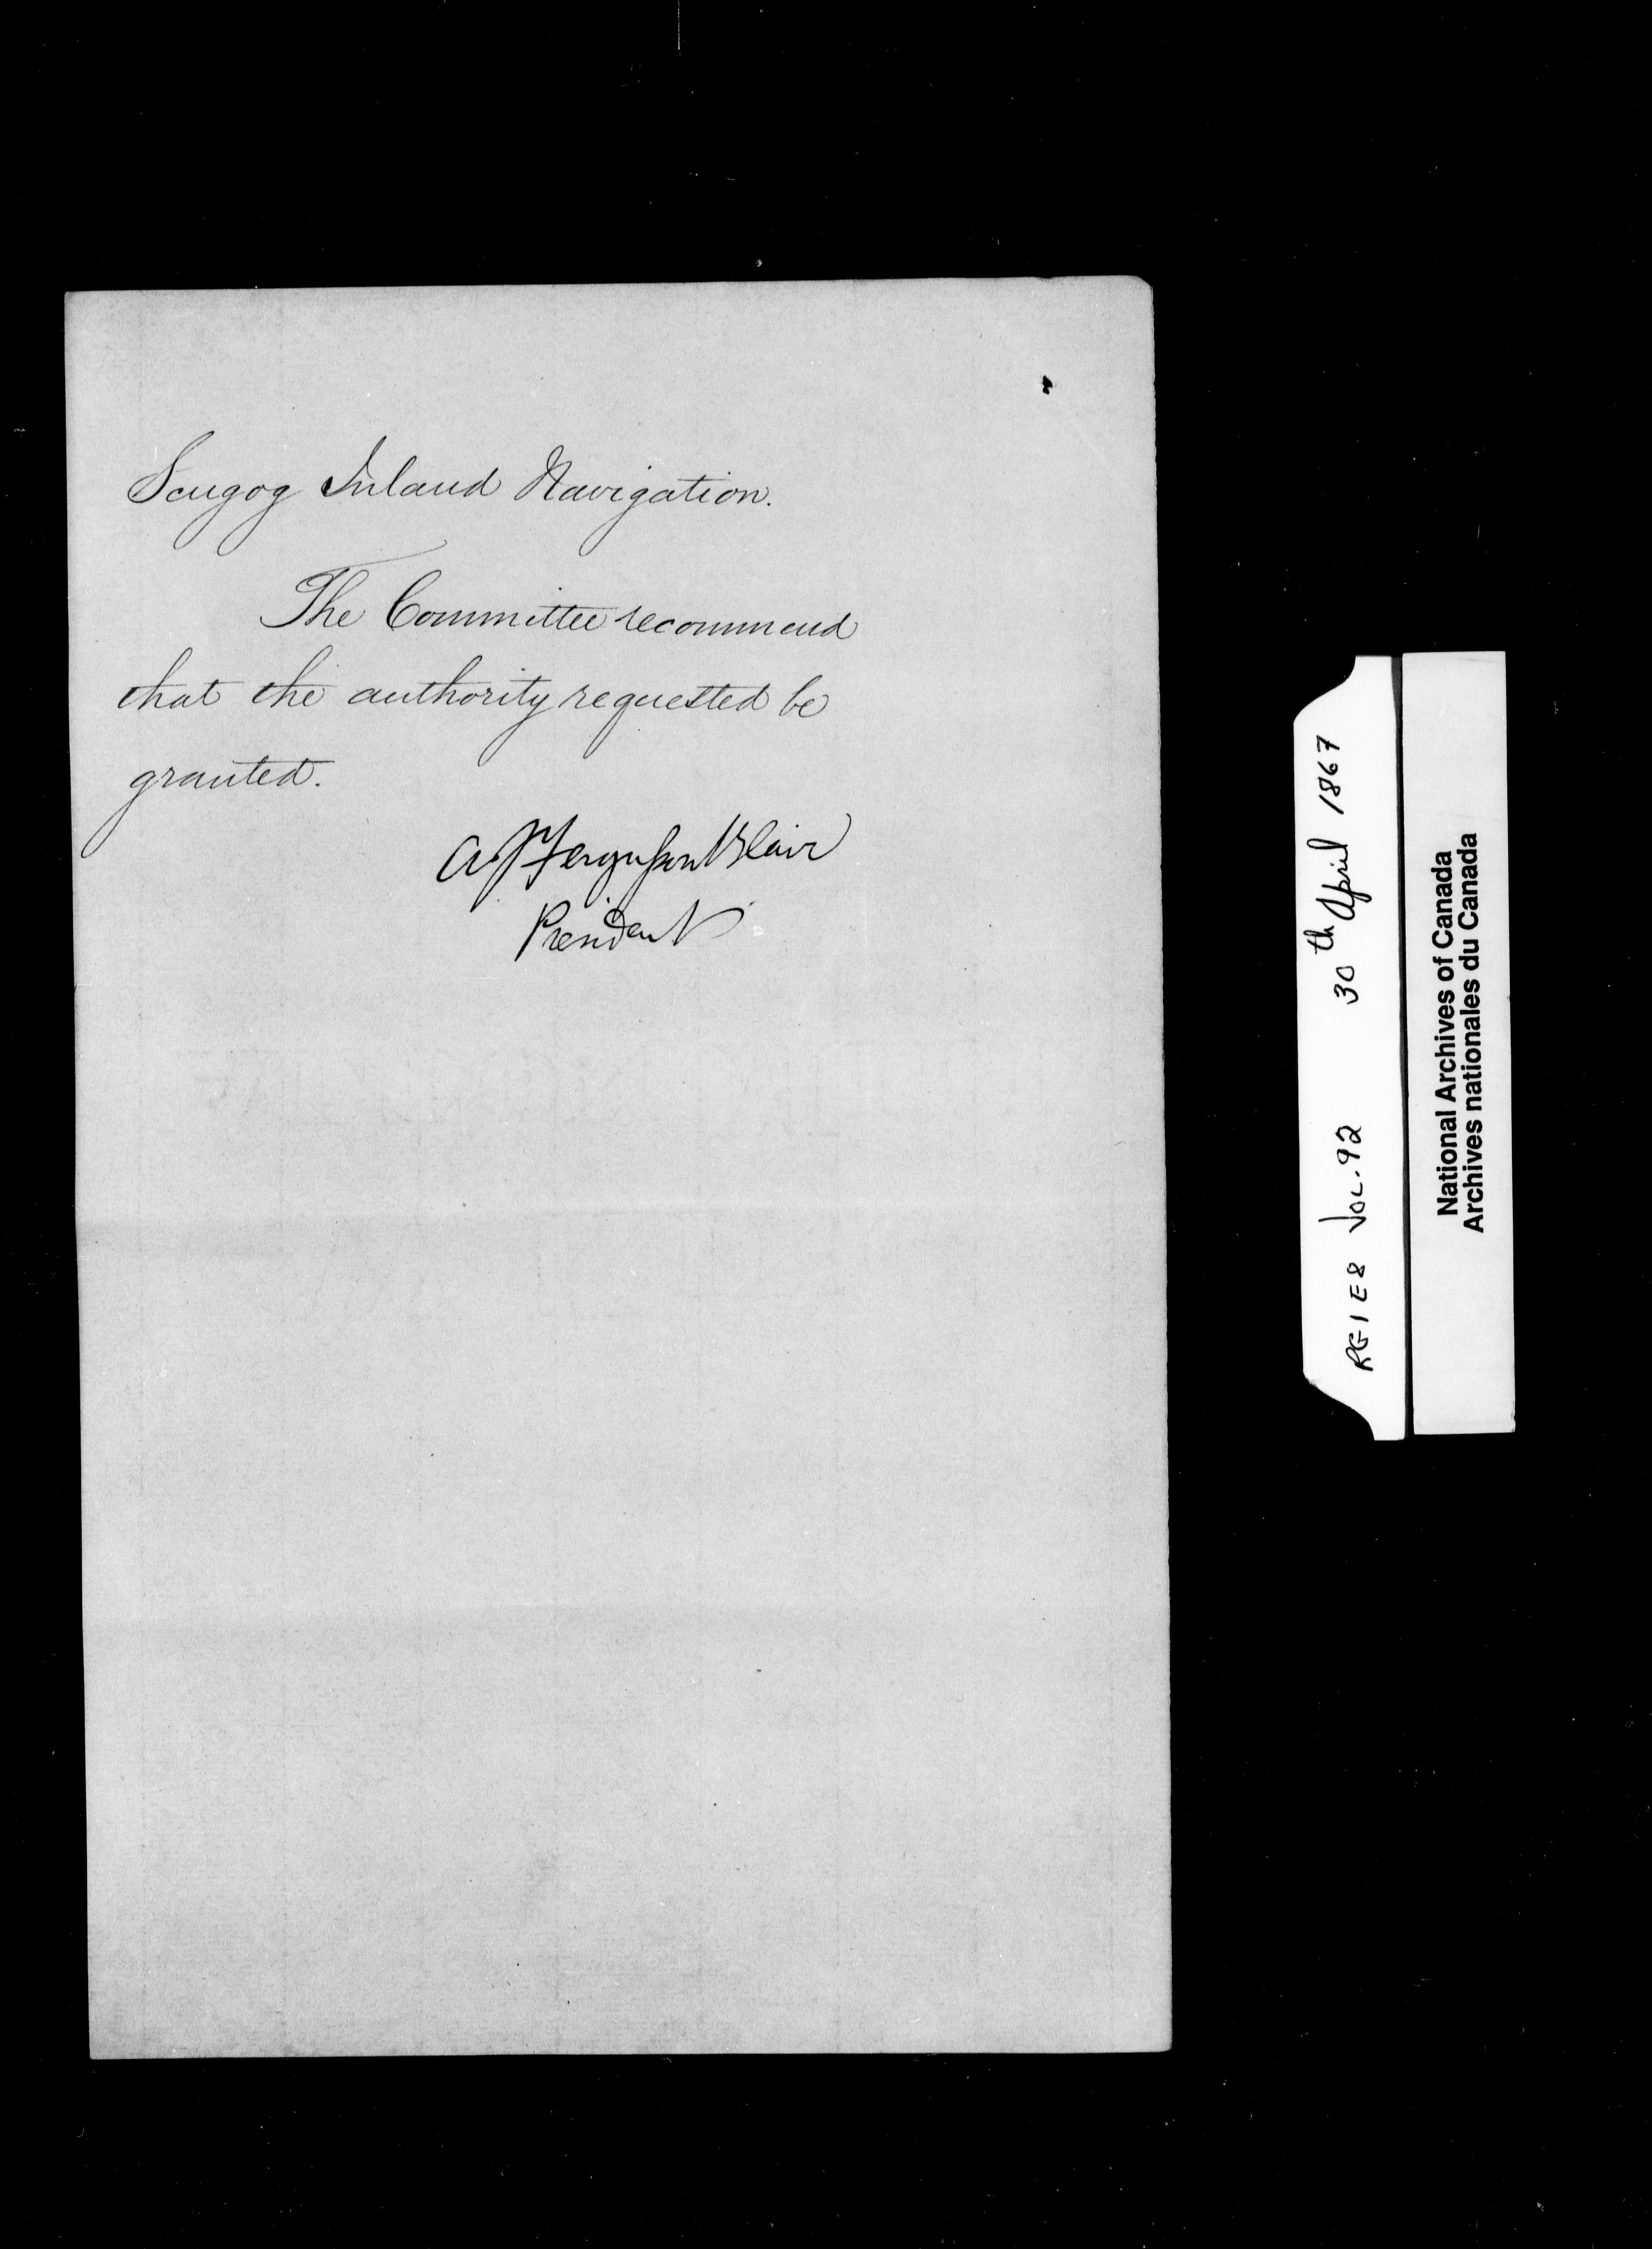 Scugog Inland Navigation.
The Committee recommend
that the authority requested be
granted.
A J Fergusson Blair
President
RG1 E8 VOL.92 30th April 1867
National Archives of Canada
Archives nationales du Canada